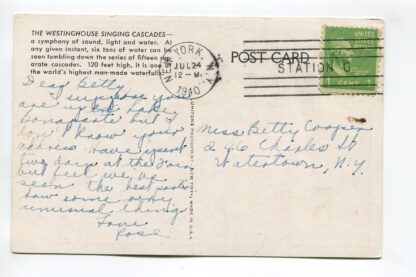 THE WESTINGHOUSE SINGING CASCADES—
a symphony of sound, light and water. At
any given instant, six tons of water can be
seen tumbling down the series of fifteen
arate cascades. 120 feet high, it is one
the world's highest man-made waterfalls
NEW YORK, N.Y.
JUL 24
12-M
1940
STATION G
POST CARD
UNITED STATES
1 CENT 1
Dear Betty
I suppose you
are up at Lake
Bonaparte but I
don't know your
address. Have spent
five days at the Fair
but feel we've
seen the best parts
Saw some very
unusual things
Love
Rose
MADE IN U.S.A.
Miss Betty Cooper
246 Charles St
Watertown, N.Y.